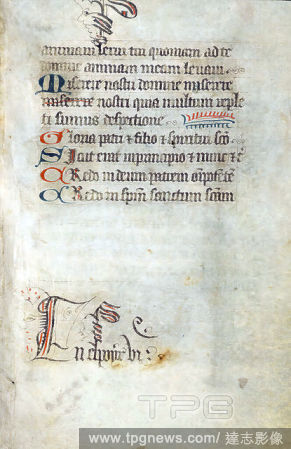 animam servi tui quoniam ad te
domine animam meam levavi
Miserere nostri domine miserere
miserere nostri quia multum reple
ti sumus despectione
Gloria patri et filio et spiritui sco
Sicut erat in principio et nunc et
Credo in deum patrem
Credo in spm sanctum
TPG
www.tpgnews.com/ 達志影像